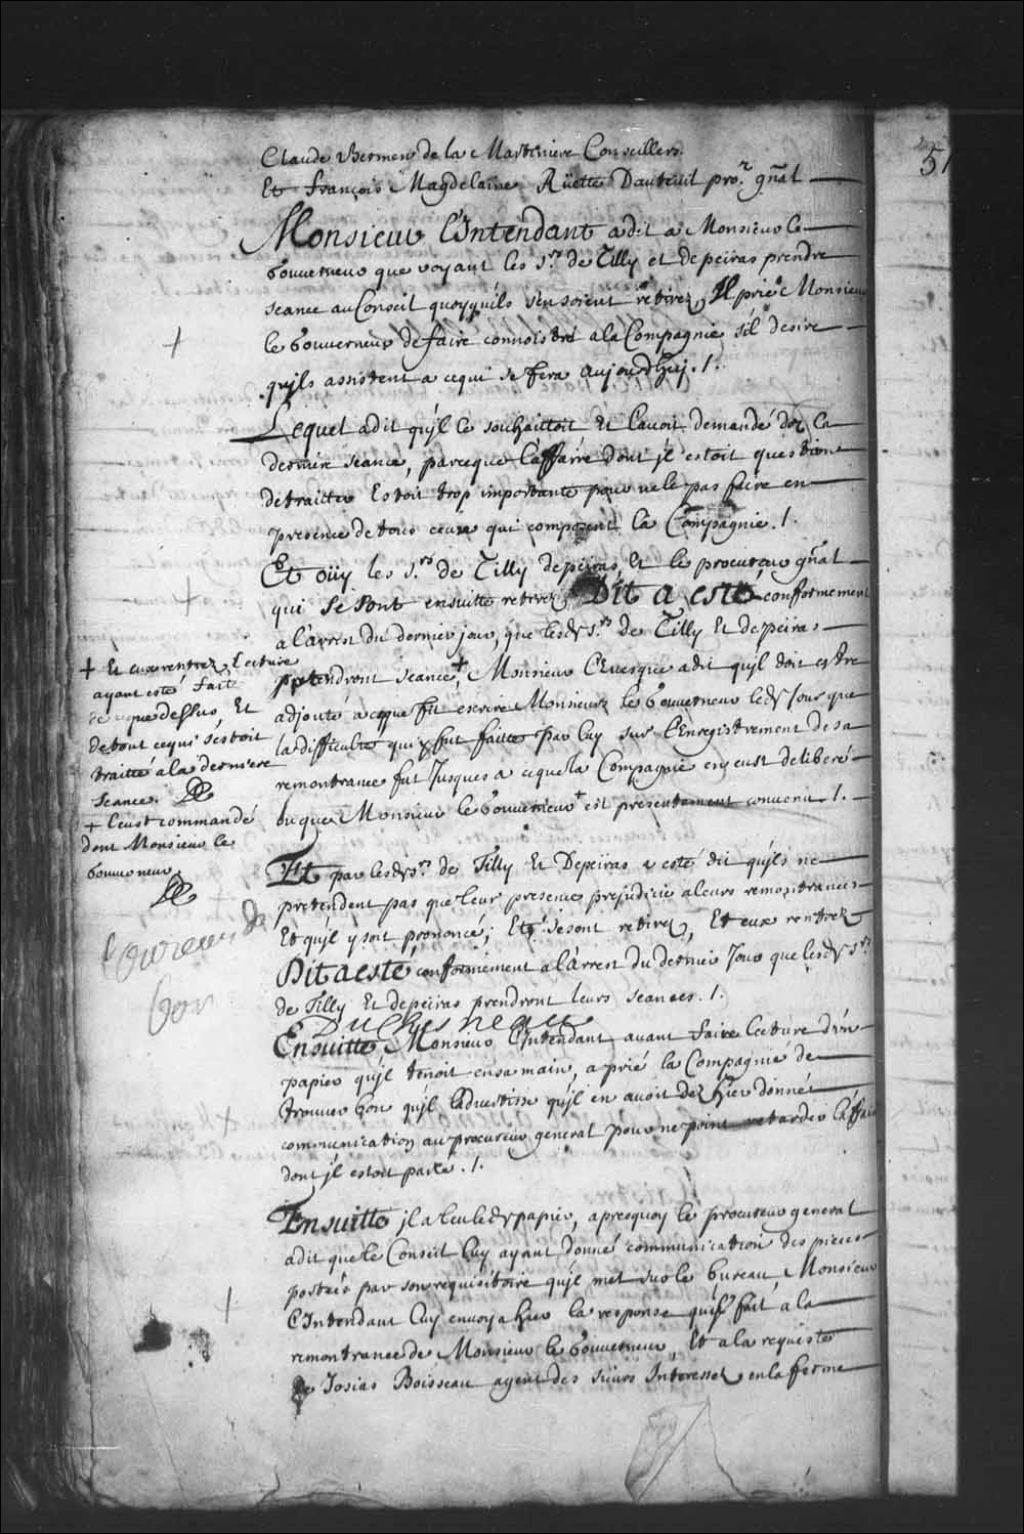 Claude Bermen de la Martiniere Conseillers.
Et françois Magdelaine Rüette Dauteuil pro.r gñal
Monsieur L'Intendant a dit a Monsieur le
Gouverneur que voyant les s.rs de Tilly et depeiras prendre
seance au Conseil quoyqu'ils s'en soient retirez, Il prie Monsieur
le Gouverneur de faire connoistre a la Compagnie s'il desire
qu'jls assistent a cequi se fera aujourd'huj ./.
Lequel a dit qu'jl le souhaittoit Et l'avoit demandé dez la
derniere seance, parceque l'affaire dont jl estoit question
de traitter Estoit trop importante pour ne le pas faire en
presence de tous ceux qui composent la Compagnie ./.
Et oüy les s.rs de Tilly depeiras, Et le procureur gñal
qui se sont ensuitte retirez Dit a esté conformement
a l'arrest du dernier jour, que lesd s.rs de Tilly Et depeiras
prendront seance,+ Monsieur L'Evesque a dit qu'jl doit estre
adjouté a ceque fit escrire Monsieur le Gouverneur led jour que
la difficulté qui fut faitte par luy sur l'Enregistrement de sa
remontrance fut Jusques a ceque la Compagnie en eust deliberé
ou que Monsieur le Gouverneur+ est presentement convenu ./.
+ Et eux rentrez, Lecture
ayant esté faite
de ceque dessus, Et
de tout cequi s'estoit
traitté a la derniere
seance.
+ l'eust commandé
dont Monsieur le
Gouverneur
Et par lesd s.rs de Tilly Et Depeiras a esté dit qu'jls ne
pretendent pas que leur presence prejudicie a leurs remontrances
Et qu'jl y soit prononcé; Et se sont retirez, Et eux rentrez
Dit a esté conformément a l'arrest du dernier Jour que lesd s.rs
de Tilly Et depeiras prendront leurs seances ./.
DuChesneau
Ensuitte Monsieur L'Intendant avant faire lecture d'vn
papier qu'jl tenoit en sa main, a prié la Compagnie de
trouver bon qu'jl l'advertisse qu'jl en avoit dez hier donné
communication au procureur general pour ne point retarder l'affaire
dont jl estoit parlé ./.
Ensuitte jl a leu led papier, apresquoy le procureur general
a dit que le Conseil luy ayant donné communication des pieces
portées par son requisitoire qu'jl met sur le bureau, Monsieur
L'Intendant luy envoya hier la response qu'jl fait a la
remontrance de Monsieur le Gouverneur, Et a la requeste
de Josias Boisseau agent des sieurs Interessez en la ferme